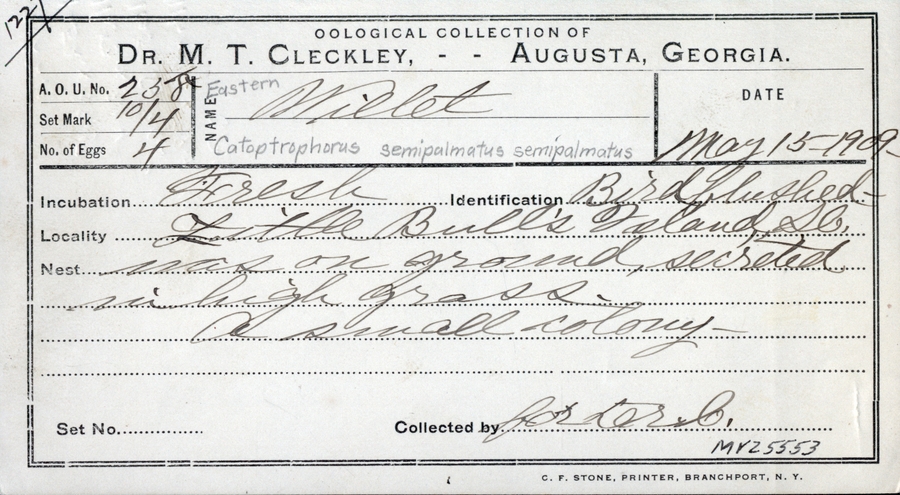 1227
OOLOGICAL COLLECTION OF
DR. M. T. CLECKLEY, - - AUGUSTA, GEORGIA.
A. O. U. No. 258
Set Mark 10/4
No. of Eggs 4
NAME
Eastern
Willet
Catoptrophorus semipalmatus semipalmatus
DATE
May 15-1909-
Incubation Fresh Identification Bird flushed-
Locality Little Bull's Island, S.C.
Nest was on ground, secreted
in high grass.
A small colony-
Set No. Collected by for Dr. C.
MVZ5553
C. F. STONE, PRINTER, BRANCHPORT, N. Y.